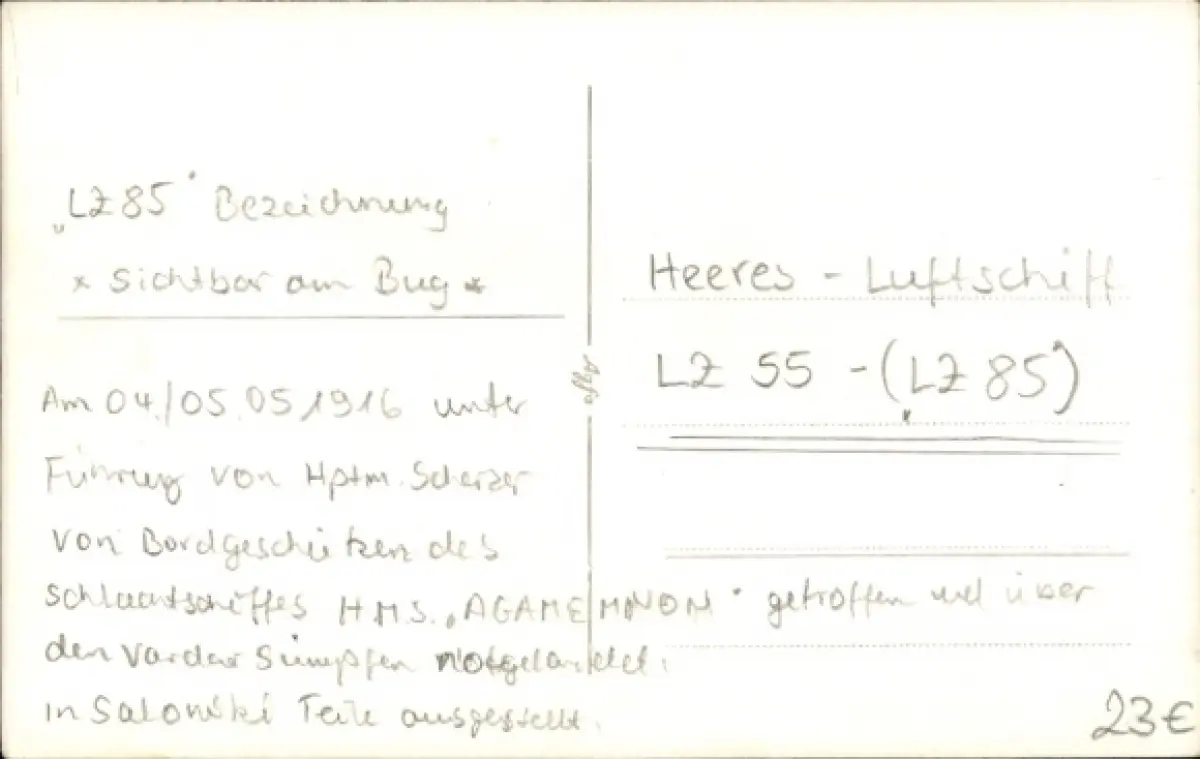 „LZ85" Bezeichnung
* Sichtbar am Bug *
Am 04./05.05.1916 unter
Führung von Hptm. Scherzer
von Bordgeschützen des
Schlachtschiffes H.M.S. „AGAMEMNON" getroffen und über
den Vardar Sümpfen notgelandet.
in Saloniki Teile ausgestellt.
Agfa
Heeres - Luftschiff
LZ 55 - (LZ 85)
23€